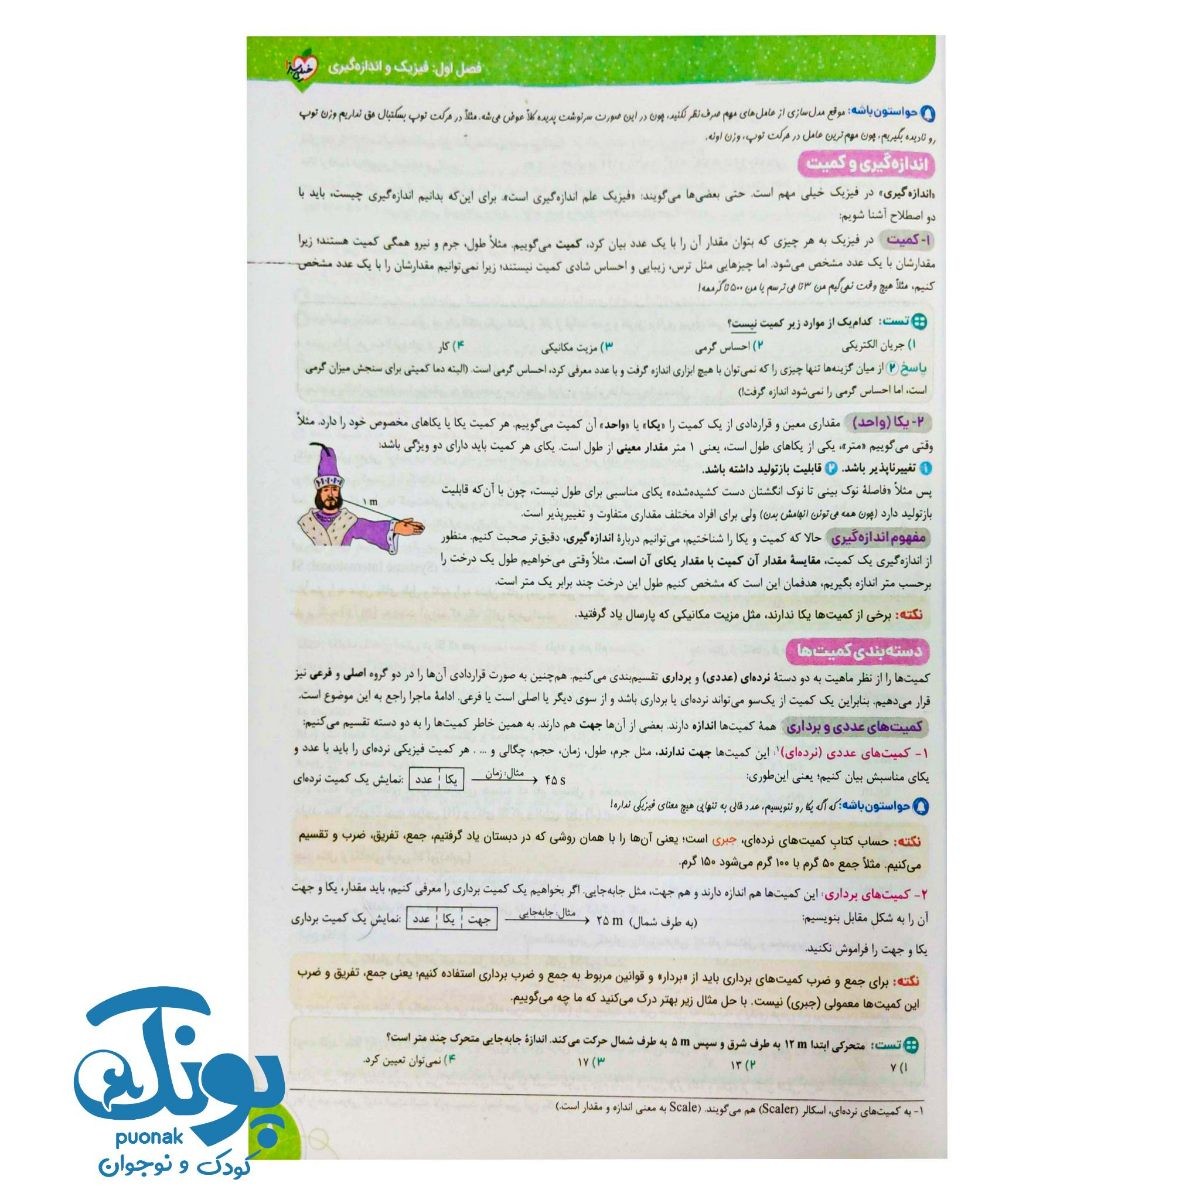 فصل اول: فیزیک و اندازه‌گیری
حواستون باشه: موقع مدل‌سازی از عامل‌های مهم صرف نظر نکنید، چون در این صورت سرنوشت پدیده کلاً عوض می‌شه. مثلاً در حرکت توپ بسکتبال حق نداریم وزن توپ
رو نادیده بگیریم، چون مهم ترین عامل در حرکت توپ، وزن اونه.
اندازه‌گیری و کمیت
«اندازه‌گیری» در فیزیک خیلی مهم است. حتی بعضی‌ها می‌گویند: «فیزیک علم اندازه‌گیری است». برای این‌که بدانیم اندازه‌گیری چیست، باید با
دو اصطلاح آشنا شویم:
۱- کمیت در فیزیک به هر چیزی که بتوان مقدار آن را با یک عدد بیان کرد، کمیت می‌گوییم. مثلاً طول، جرم و نیرو همگی کمیت هستند؛ زیرا
مقدارشان با یک عدد مشخص می‌شود. اما چیزهایی مثل ترس، زیبایی و احساس شادی کمیت نیستند؛ زیرا نمی‌توانیم مقدارشان را با یک عدد مشخص
کنیم، مثلاً هیچ وقت نمی‌گیم من ۳ تا می ترسم یا من ۵۰۰ تا گرممه!
تست: کدام‌یک از موارد زیر کمیت نیست؟
۱) جریان الکتریکی ۲) احساس گرمی ۳) مزیت مکانیکی ۴) کار
پاسخ ۲ از میان گزینه‌ها تنها چیزی را که نمی‌توان با هیچ ابزاری اندازه گرفت و با عدد معرفی کرد، احساس گرمی است. (البته دما کمیتی برای سنجش میزان گرمی
است، اما احساس گرمی را نمی‌شود اندازه گرفت!)
۲- یکا (واحد) مقداری معین و قراردادی از یک کمیت را «یکا» یا «واحد» آن کمیت می‌گوییم. هر کمیت یکا یا یکاهای مخصوص خود را دارد. مثلاً
وقتی می‌گوییم «متر»، یکی از یکاهای طول است، یعنی ۱ متر مقدار معینی از طول است. یکای هر کمیت باید دارای دو ویژگی باشد:
۱ تغییرناپذیر باشد. ۲ قابلیت بازتولید داشته باشد.
پس مثلاً «فاصلهٔ نوک بینی تا نوک انگشتان دست کشیده‌شده» یکای مناسبی برای طول نیست، چون با آن‌که قابلیت
بازتولید دارد (چون همه می‌تونن انجامش بدن) ولی برای افراد مختلف مقداری متفاوت و تغییرپذیر است.
۱ m
مفهوم اندازه‌گیری حالا که کمیت و یکا را شناختیم، می‌توانیم دربارهٔ اندازه‌گیری، دقیق‌تر صحبت کنیم. منظور
از اندازه‌گیری یک کمیت، مقایسهٔ مقدار آن کمیت با مقدار یکای آن است. مثلاً وقتی می‌خواهیم طول یک درخت را
برحسب متر اندازه بگیریم، هدفمان این است که مشخص کنیم طول این درخت چند برابر یک متر است.
نکته: برخی از کمیت‌ها یکا ندارند، مثل مزیت مکانیکی که پارسال یاد گرفتید.
دسته‌بندی کمیت‌ها
کمیت‌ها را از نظر ماهیت به دو دستهٔ نرده‌ای (عددی) و برداری تقسیم‌بندی می‌کنیم. هم‌چنین به صورت قراردادی آن‌ها را در دو گروه اصلی و فرعی نیز
قرار می‌دهیم. بنابراین یک کمیت از یک‌سو می‌تواند نرده‌ای یا برداری باشد و از سوی دیگر یا اصلی است یا فرعی. ادامهٔ ماجرا راجع به این موضوع است.
کمیت‌های عددی و برداری همهٔ کمیت‌ها اندازه دارند. بعضی از آن‌ها جهت هم دارند. به همین خاطر کمیت‌ها را به دو دسته تقسیم می‌کنیم:
۱- کمیت‌های عددی (نرده‌ای)۱: این کمیت‌ها جهت ندارند، مثل جرم، طول، زمان، حجم، چگالی و ... . هر کمیت فیزیکی نرده‌ای را باید با عدد و
یکای مناسبش بیان کنیم؛ یعنی این‌طوری:
نمایش یک کمیت نرده‌ای: عدد یکا مثال: زمان ۴۵ s
حواستون باشه: که اگه یکا رو ننویسیم، عدد خالی به تنهایی هیچ معنای فیزیکی نداره!
نکته: حساب کتاب کمیت‌های نرده‌ای، جبری است؛ یعنی آن‌ها را با همان روشی که در دبستان یاد گرفتیم، جمع، تفریق، ضرب و تقسیم
می‌کنیم. مثلاً جمع ۵۰ گرم با ۱۰۰ گرم می‌شود ۱۵۰ گرم.
۲- کمیت‌های برداری: این کمیت‌ها هم اندازه دارند و هم جهت، مثل جابه‌جایی. اگر بخواهیم یک کمیت برداری را معرفی کنیم، باید مقدار، یکا و جهت
آن را به شکل مقابل بنویسیم:
نمایش یک کمیت برداری: عدد یکا جهت مثال: جابه‌جایی ۲۵ m (به طرف شمال)
یکا و جهت را فراموش نکنید.
نکته: برای جمع و ضرب کمیت‌های برداری باید از «بردار» و قوانین مربوط به جمع و ضرب برداری استفاده کنیم؛ یعنی جمع، تفریق و ضرب
این کمیت‌ها معمولی (جبری) نیست. با حل مثال زیر بهتر درک می‌کنید که ما چه می‌گوییم.
تست: متحرکی ابتدا ۱۲ m به طرف شرق و سپس ۵ m به طرف شمال حرکت می‌کند. اندازهٔ جابه‌جایی متحرک چند متر است؟
۱) ۷ ۲) ۱۳ ۳) ۱۷ ۴) نمی‌توان تعیین کرد.
۱- به کمیت‌های نرده‌ای، اسکالر (Scaler) هم می‌گویند. (Scale به معنی اندازه و مقدار است.)
پونک
puonak
کودک و نوجوان